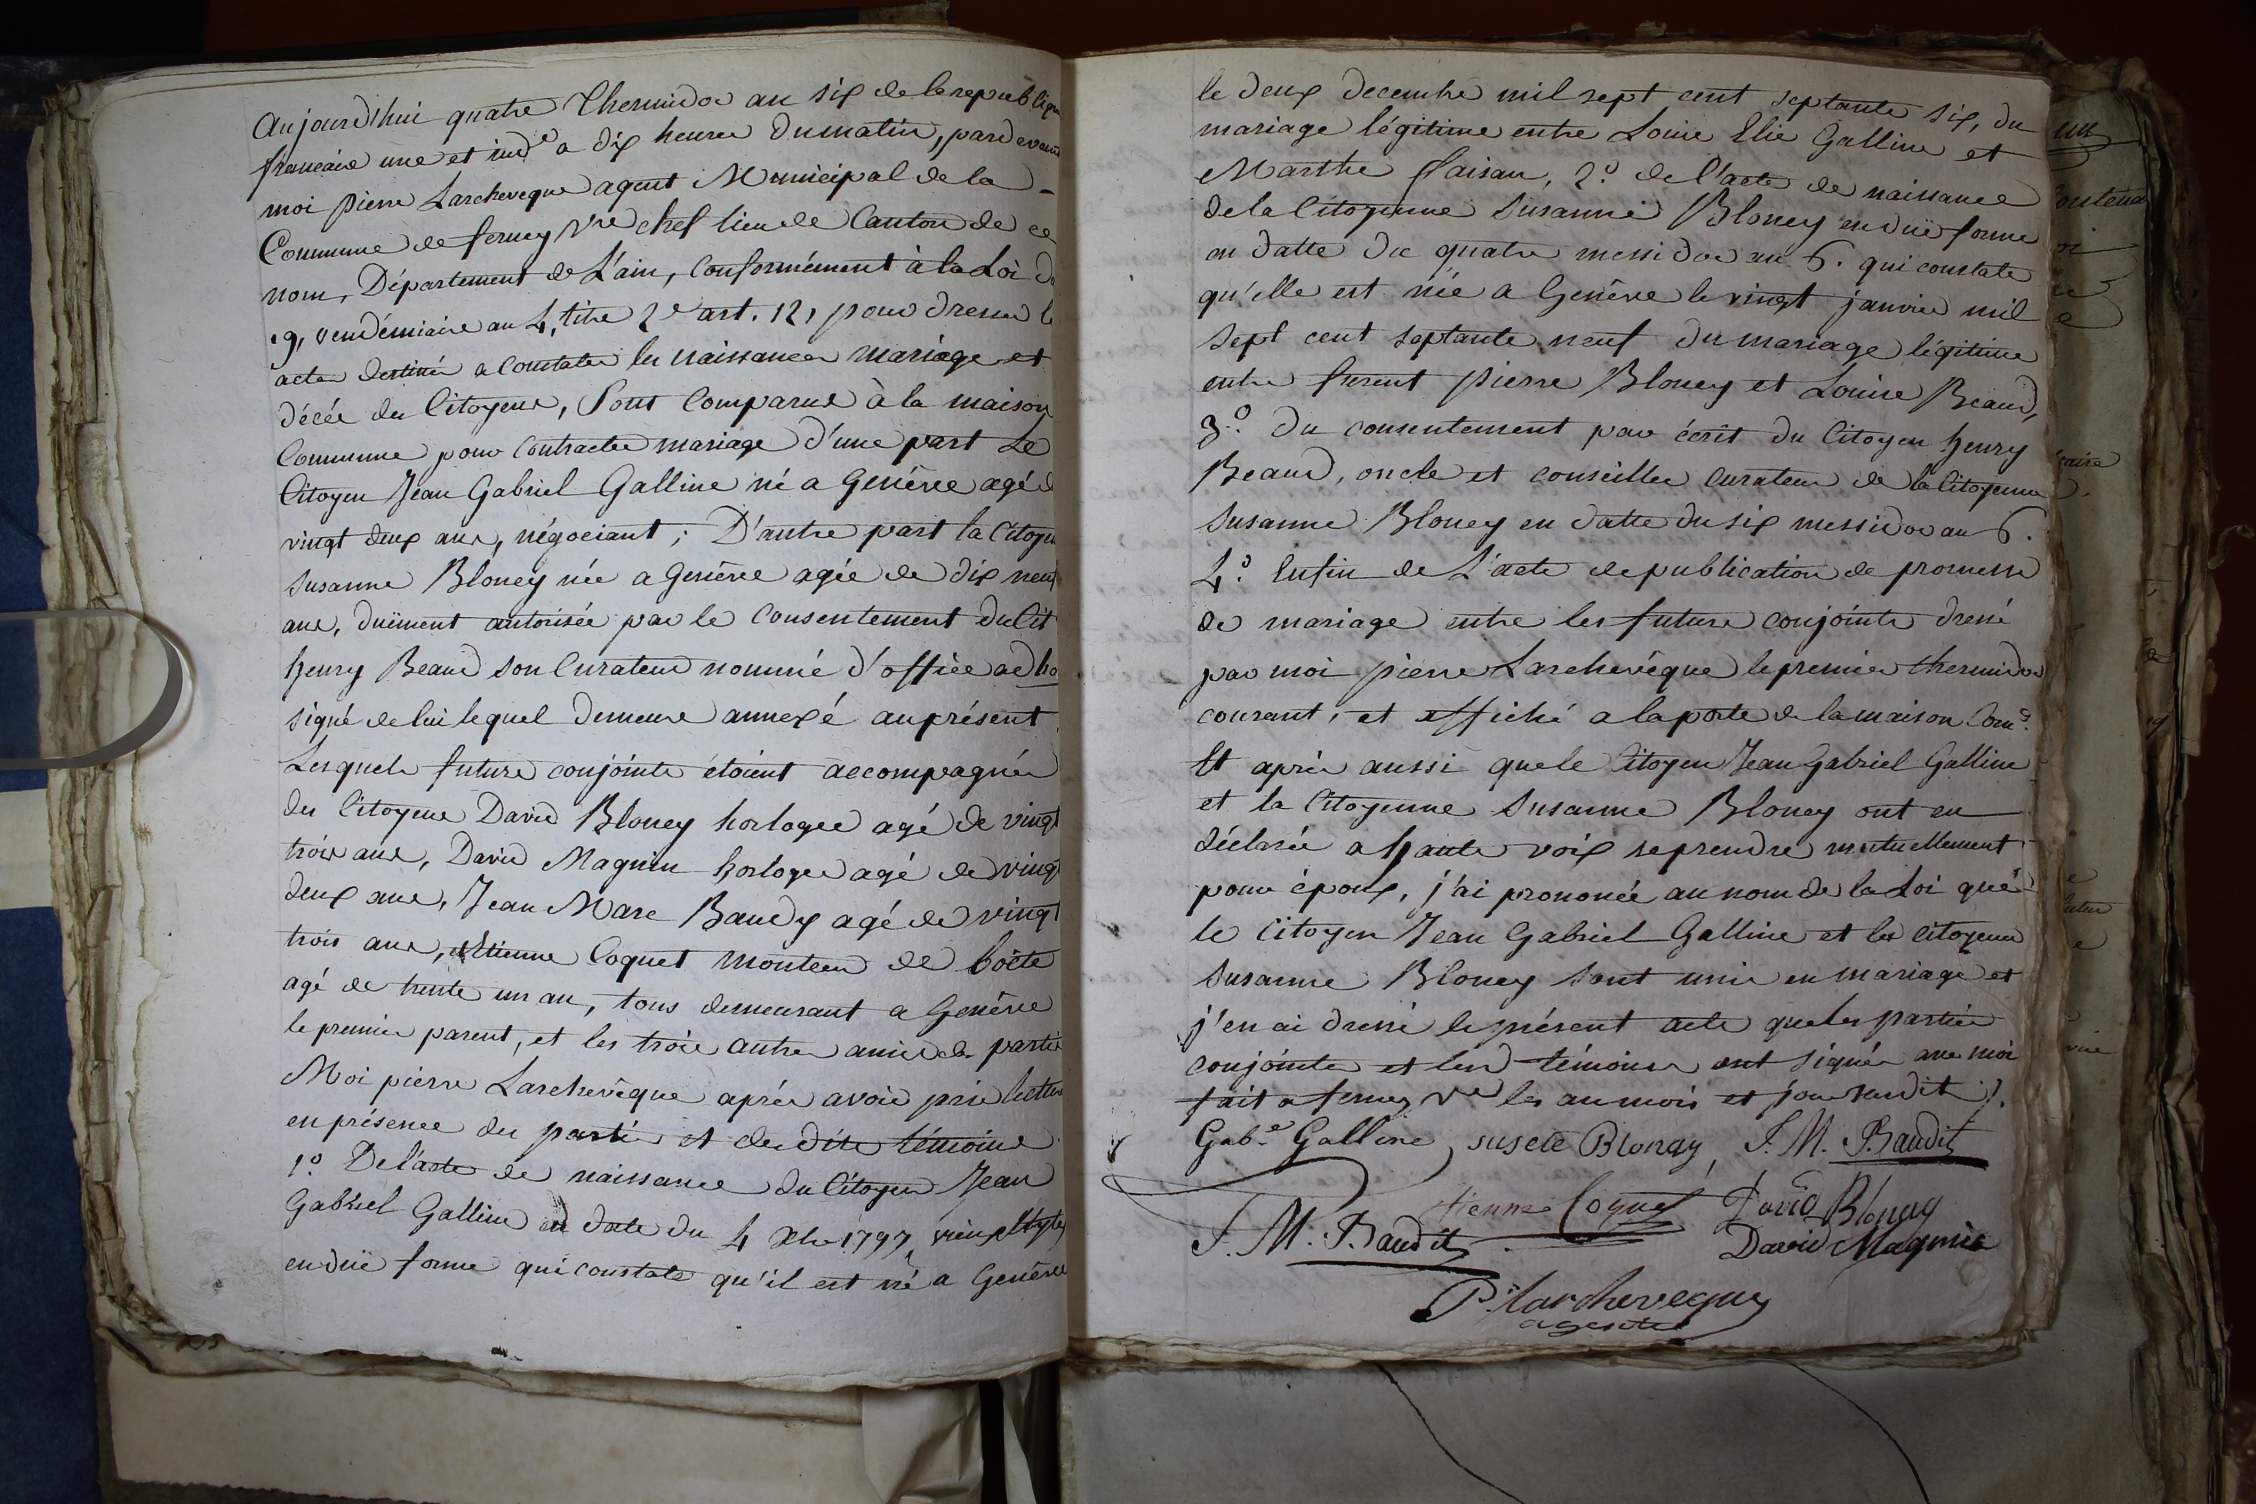 Aujourd'hui quatre Thermidor an six de la republique
francaise une et ind.e a dix heures du matin, pardevant
moi pierre Larcheveque agent Municipal de la
Commune de ferney Vre chef lieu de Canton de ce
nom, Département de L'ain, conformément à la Loi du
19, vendémiaire an 4, titre 2e art. 12, pour dresser les
actes destinés a constater les naissances mariages et
décès des Citoyens, Sont Comparus à la maison
Commune pour contracter mariage d'une part Le
Citoyen Jean Gabriel Galline né a Genêve agé de
vingt deux ans, négociant ; D'autre part la Citoyenne
Susanne Bloney née a Genêve agée de dix neuf
ans, duëment autorisée par le consentement du Cit
henry Beaud son Curateur nommé d'office ad ho
signé de lui lequel demeure annexé au présent
Lesquels futurs conjoints étoient accompagnés
des Citoyens David Bloney horloger agé de vingt
trois ans, David Magnin horloger agé de vingt
deux ans, Jean Marc Baudy agé de vingt
trois ans, et Etienne Coquet monteur de boëte
agé de trente un an, tous demeurant a Genêve
le premier parent, et les trois autres amis des parties
Moi pierre Larchevêque après avoir pris lecture
en présence des parties et des dits témoins
1.o De l'acte de naissance du Citoyen Jean
Gabriel Galline en date du 4 Xbre 1797, vieux style
en duë forme qui constate qu'il est né a Genêve
le deux decembre mil sept cent septante six, du
mariage légitime entre Louis Elie Galline et
Marthe faisan, 2.o de l'acte de naissance
de la Citoyenne Susanne Bloney en duë forme
en datte du quatre messidor an 6. qui constate
qu'elle est née a Genêve le vingt janvier mil
sept cent septante neuf du mariage légitime
entre furent pierre Bloney et Louise Beaud,
3.o du consentement par écrit du Citoyen henry
Beaud, oncle et conseiller curateur de la Citoyenne
Susanne Bloney en datte du six messidor an 6.
4.o Enfin de L'acte de publication de promesse
de mariage entre les futurs conjoints dressé
par moi pierre Larchevêque le premier thermidor
courant, et affiché a la porte de la maison Com.e
Et après aussi que le Citoyen Jean Gabriel Galline
et la Citoyenne Susanne Bloney ont eu
déclaré a haute voix se prendre mutuellement
pour époux, j'ai prononcé au nom de la Loi que
le Citoyen Jean Gabriel Galline et la citoyenne
Susanne Bloney sont unis en mariage et
j'en ai dressé le présent acte que les parties
conjointes et leurs témoins ont signés avec moi
fait a ferney Vre les an mois et jour susdits
Gab.el Galline Susete Blonay J. M. Baudit
Etienne Coquet David Blonay
J. M. Baudit David Magnin
P. Larcheveque
agent